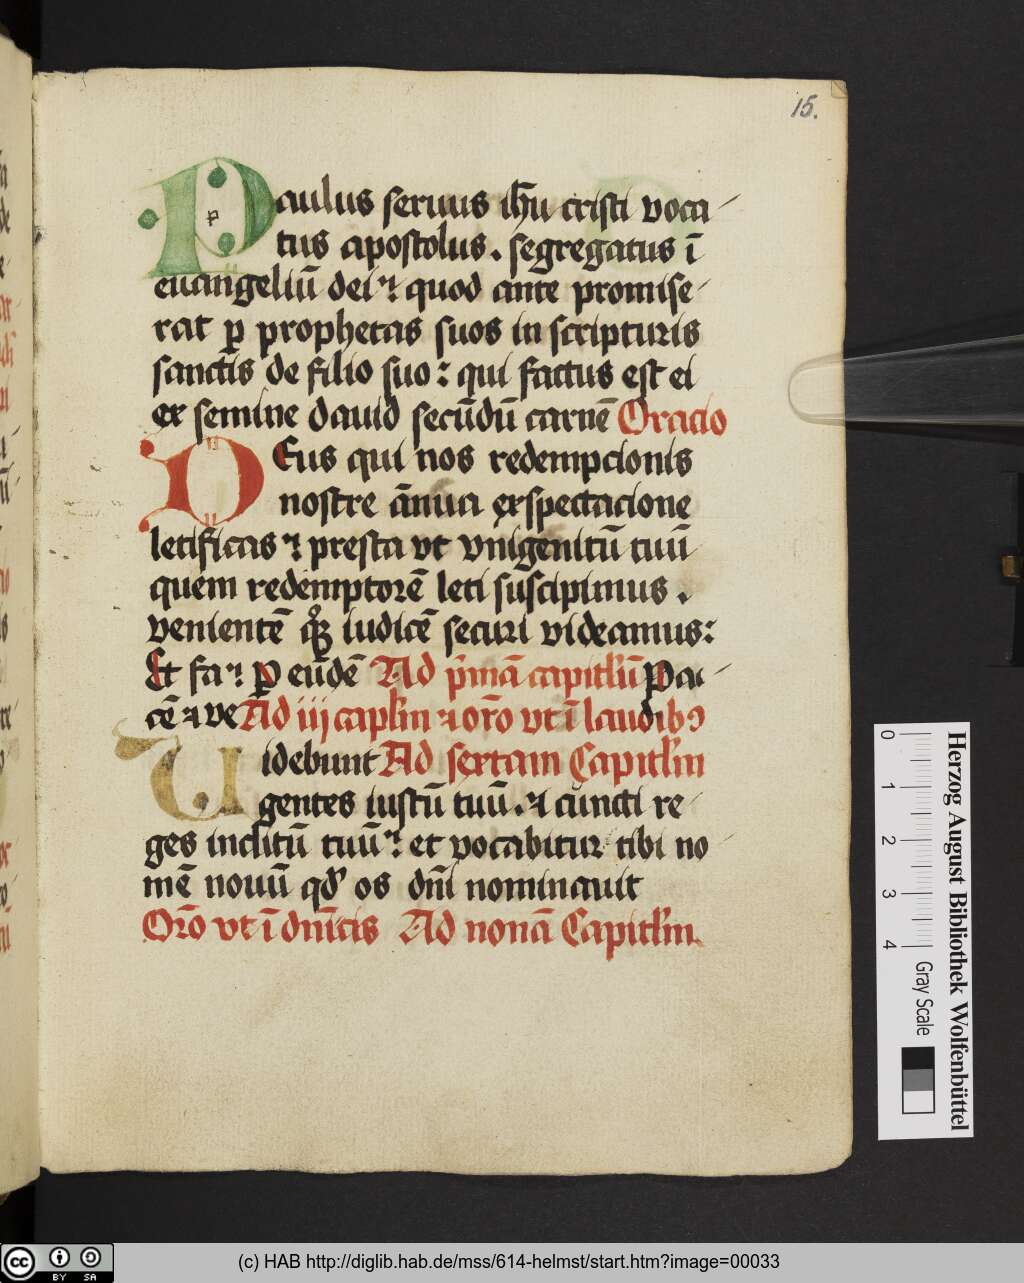 15.
Paulus seruus ihū cristi voca
tus apostolus. segregatus ī
euangeliū dei ⁊ quod ante promise
rat ꝑ prophetas suos in scripturis
sanctis de filio suo: qui factus est ei
ex semine dauid secūdū carnē Oracio
DEus qui nos redempcionis
nostre ānua exspectacione
letificas ⁊ presta vt vnigenitū tuū
quem redemptorē leti suscipimus.
venientē qͦꝫ iudicē securi videamus:
Et fa⁊ ꝑ eūdē Ad p̄mā capitl̄ū Pa
cē ⁊ ve Ad iij capl̄m ⁊ or̄o vt ī laudibꝫ
Uidebunt Ad sextam Capitl̄m
gentes iustū tuū. ⁊ cūncti re
ges inclitū tuū ⁊ et vocabitur tibi no
mē nouū qd̓ os dn̄i nominauit
Or̄o vt ī dn̄icis Ad nonā Capitl̄m
p
0 1 2 3 4
Gray Scale
Herzog August Bibliothek Wolfenbüttel
cc BY SA
(c) HAB http://diglib.hab.de/mss/614-helmst/start.htm?image=00033